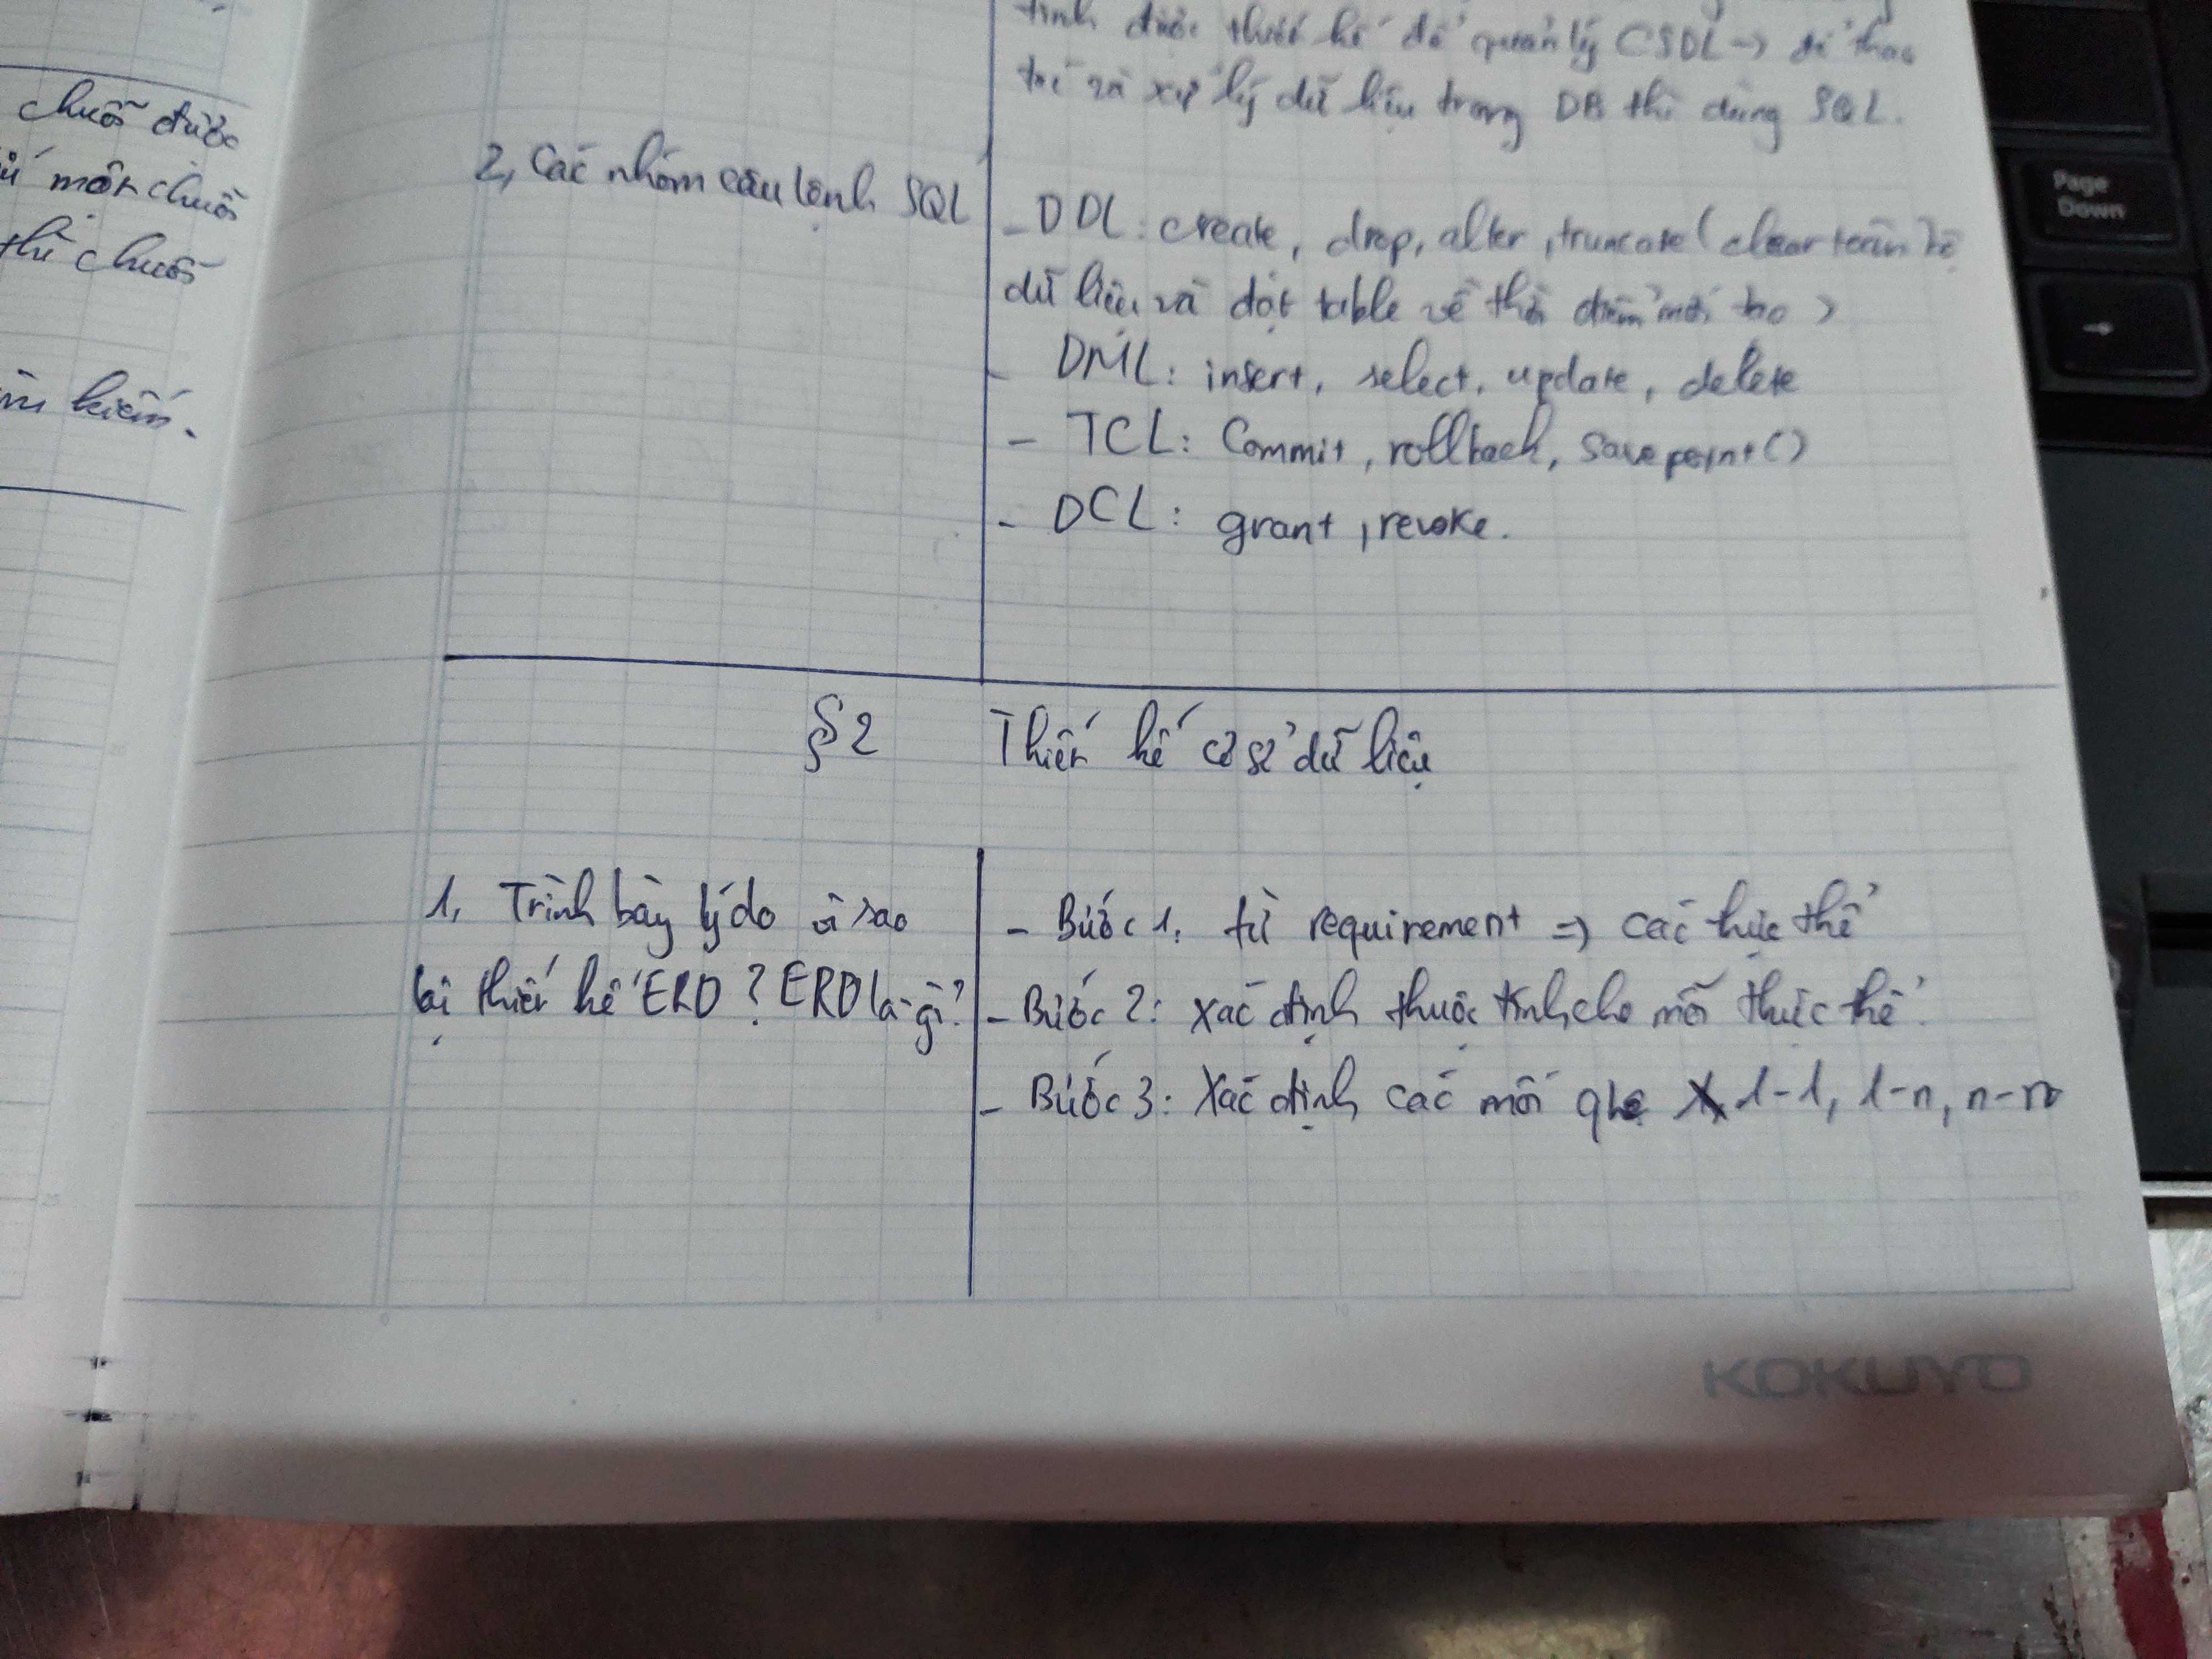 chuỗi được
một chuỗi
thì chuỗi
kiếm.
tính được thiết kế để quản lý CSDL → để thao
tác và xử lý dữ liệu trong DB thì dùng SQL.
2, Các nhóm câu lệnh SQL
- DDL: create, drop, alter, truncate (clear toàn bộ
dữ liệu và đặt table về thời điểm mới tạo)
- DML: insert, select, update, delete
- TCL: Commit, rollback, savepoint()
- DCL: grant, revoke.
§2 Thiết kế cơ sở dữ liệu
1, Trình bày lý do vì sao
lại thiết kế ERD? ERD là gì?
- Bước 1: từ requirement => các thực thể
- Bước 2: Xác định thuộc tính cho mỗi thực thể.
- Bước 3: Xác định các mối qhệ 1-1, 1-n, n-n
KOKUYO
Page
Down
→